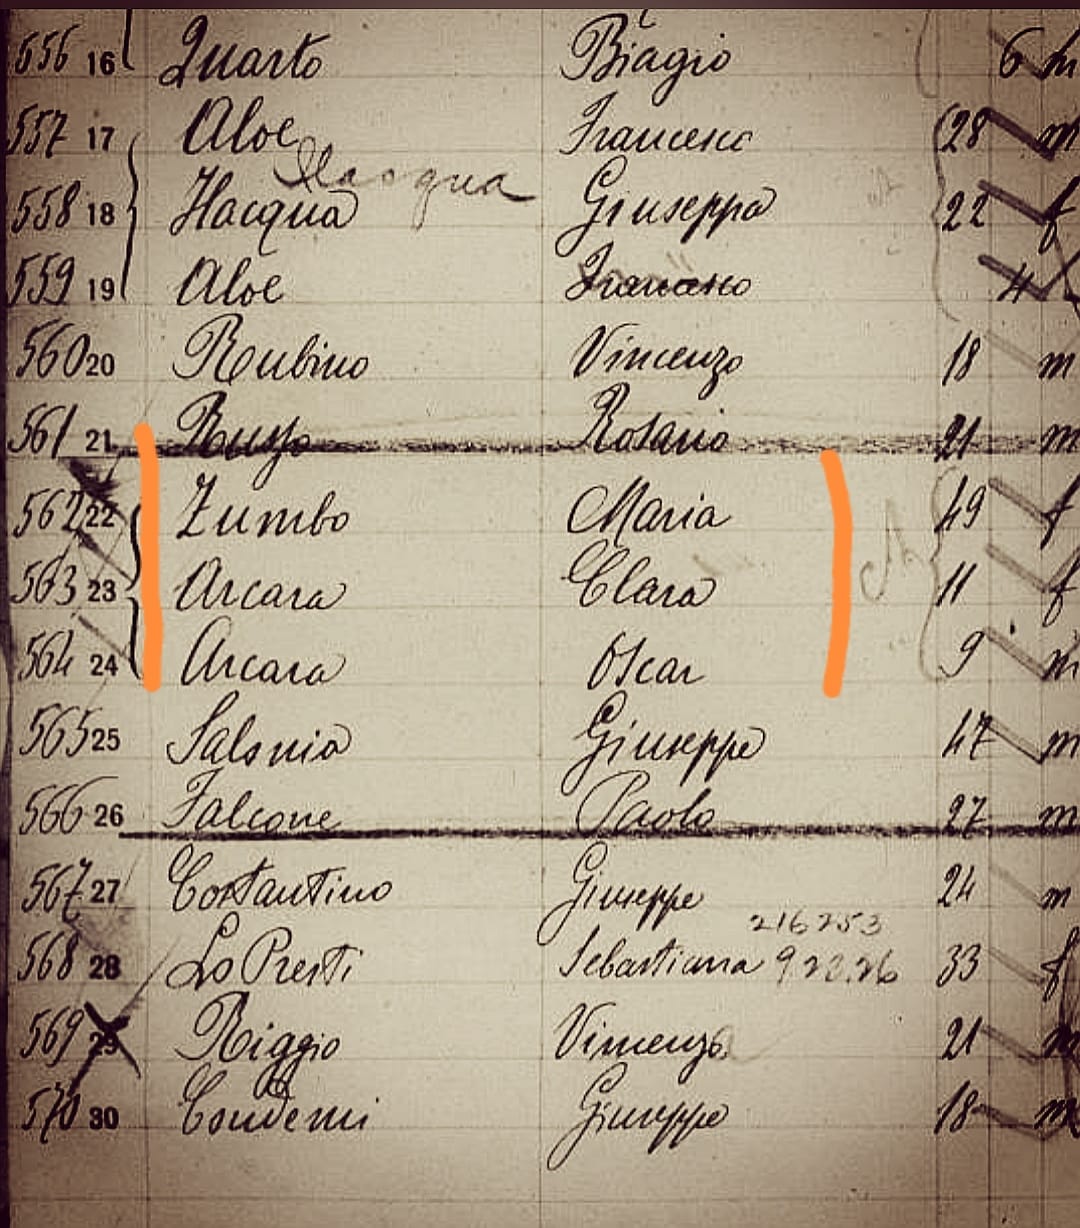 556 16 Quarto Biagio 6 m
557 17 Aloe Francesco 28 m
Ilacqua
558 18 Ilacqua Giuseppa 22 f
559 19 Aloe Francesco 4
560 20 Rubino Vincenzo 18 m
561 21 Russo Rosario 21 m
562 22 Zumbo Maria 49 f
563 23 Arcara Clara 11 f
564 24 Arcara Oscar 9 m
565 25 Salsnia Giuseppe 47 m
566 26 Falcone Paolo 27 m
567 27 Costantino Giuseppe 24 m
216253
568 28 Lo Presti Sebastiana 9 22.26 33 f
569 29 Riggio Vincenzo 21 m
570 30 Condemi Giuseppe 18 m